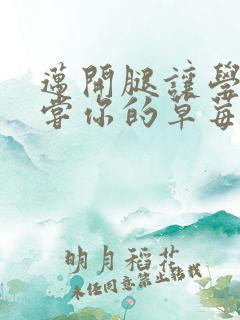 邁開腿讓學
嘗你的草莓
明月稻花
未经同意禁止转载